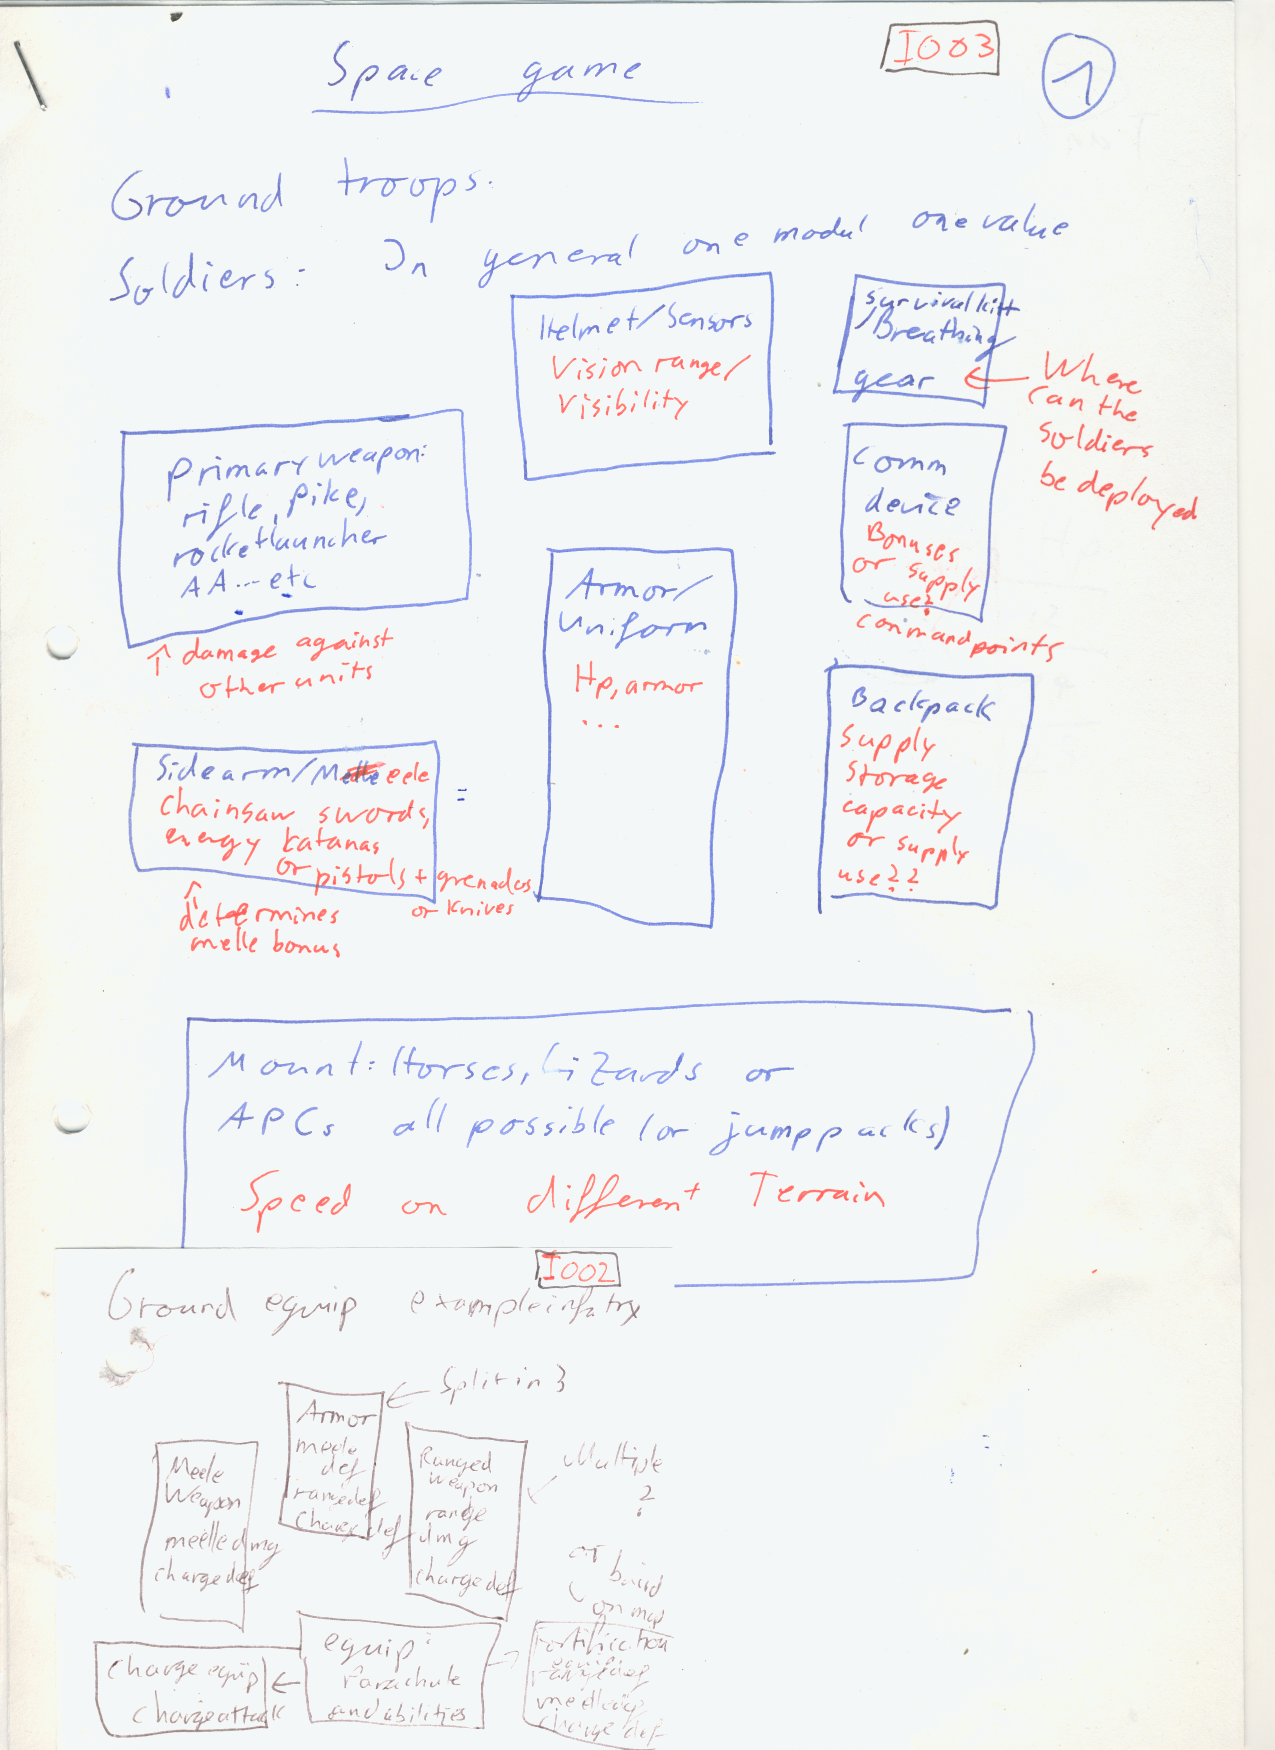 Space game
I003
1
Ground troops:
Soldiers: In general one modul one value
Helmet/Sensors
Vision range/
Visibility
Survivalkitt
/Breathing
gear
Where
can the
soldiers
be deployed
Primary weapon:
rifle, pike,
rocketlauncher
AA... etc
damage against
other units
Comm
device
Bonuses
or supply
use?
commandpoints
Armor/
Uniform
Hp, armor
...
Backpack
Supply
Storage
capacity
or supply
use??
Sidearm/Meele
Chainsaw swords,
energy katanas
or pistols + grenades
or knives
determines
melle bonus
Mount: Horses, Lizards or
APCs all possible (or jumppacks)
Speed on different Terrain
I002
Ground equip example infatry
Split in 3
Armor
meele
def
rangedef
charge def
Meele
Weapon
meelledmg
chargedef
Ranged
weapon
range
dmg
chargedef
Multiple
?
or
build
on map
equip:
Parachute
and abilities
charge equip
chargeattack
Fortification
rangedef
charge def